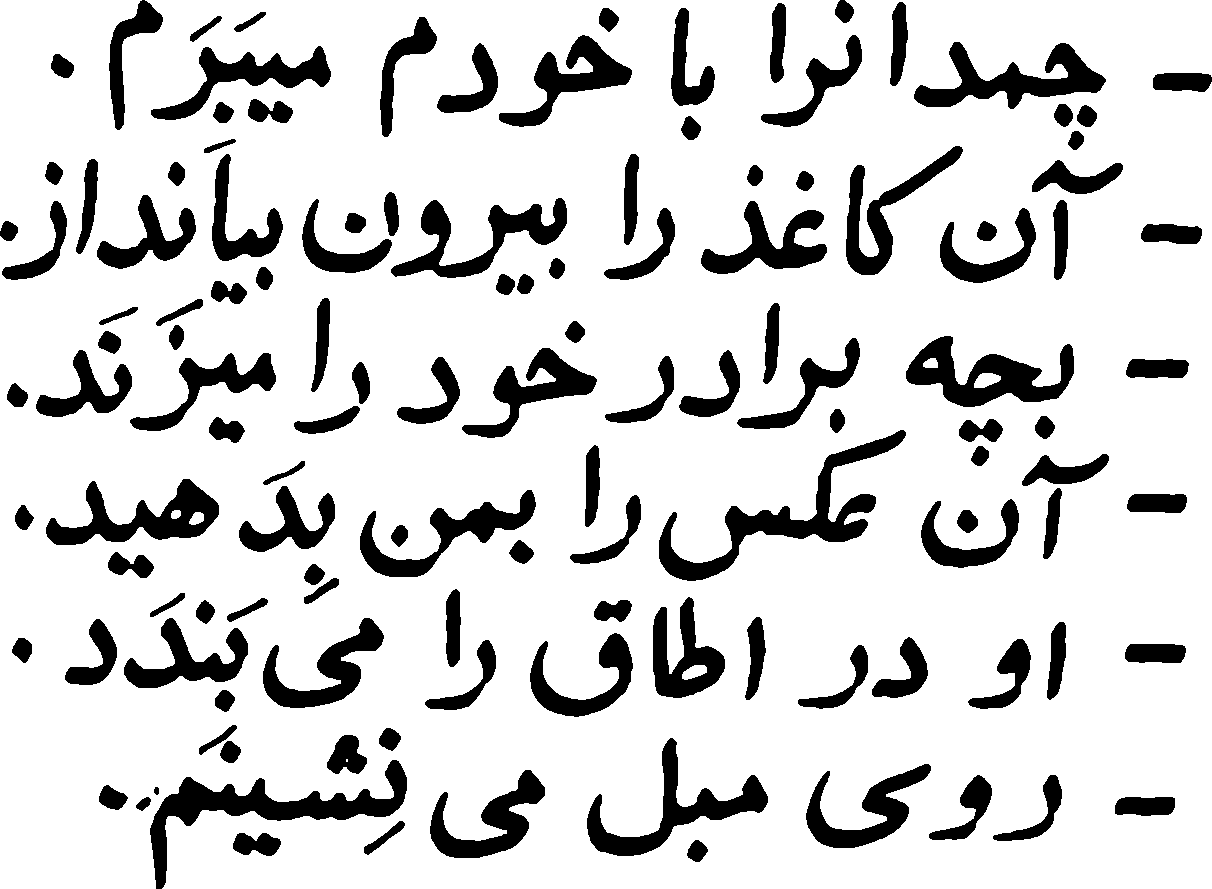 - چمدانرا با خودم میبَرَم .
- آن کاغذ را بیرون بیَانداز.
- بچه برادر خود را میزَنَد.
- آن عکس را بمن بِدَهید.
- او در اطاق را می بَندَد .
- روی مبل می نِشینَم.